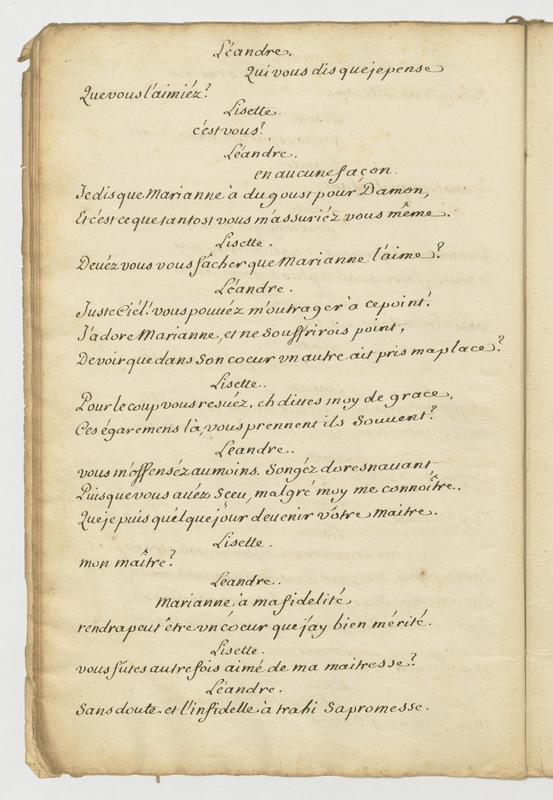 Léandre.
Qui vous dis que je pense
Que vous l'aimiéz?
Lisette.
c'est vous?
Léandre.
en aucune façon.
Je dis que Marianne à du goust pour Damon,
Et c'est ce que tantost vous m'assuriéz vous même.
Lisette.
Devéz vous vous fâcher que Marianne l'aime?
Léandre.
Juste Ciél! vous pouvéz m'outrager à ce point!
J'adore Marianne, et ne souffrirois point,
De voir que dans son coeur vn autre ait pris ma place?
Lisette.
Pour le coup vous resvéz, eh dittes moy de grace,
Ces égaremens là, vous prennent ils souvent?
Leandre.
vous m'offenséz au moins. Songéz doresnavant
Puisque vous avéz sceu, malgré moy me connoître.
Que je puis quélque jour devenir vôtre Maitre.
Lisette.
mon maître?
Leandre.
Marianne à ma fidelité
rendra peut être vn coeur que j'ay bien mérité.
Lisette.
vous futes autrefois aimé de ma maitresse?
Léandre.
Sans doute et l'infidelle à trahi sa promesse.